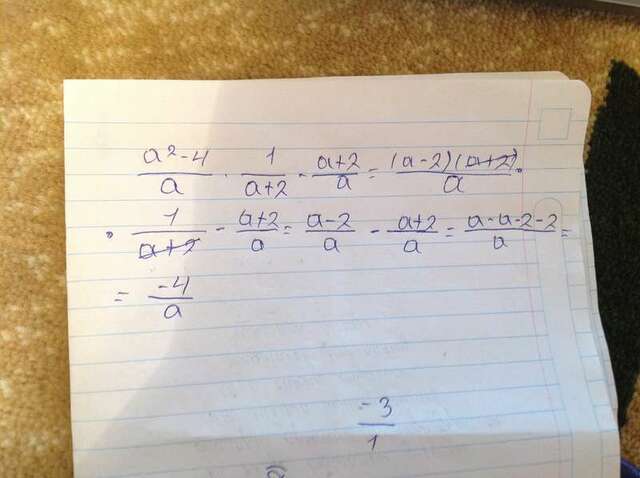 (a²-4)/a · 1/(a+2) - (a+2)/a = ((a-2)(a+2))/a ·
· 1/(a+2) - (a+2)/a = (a-2)/a - (a+2)/a = (a-a-2-2)/a =
= -4/a
= 3/1